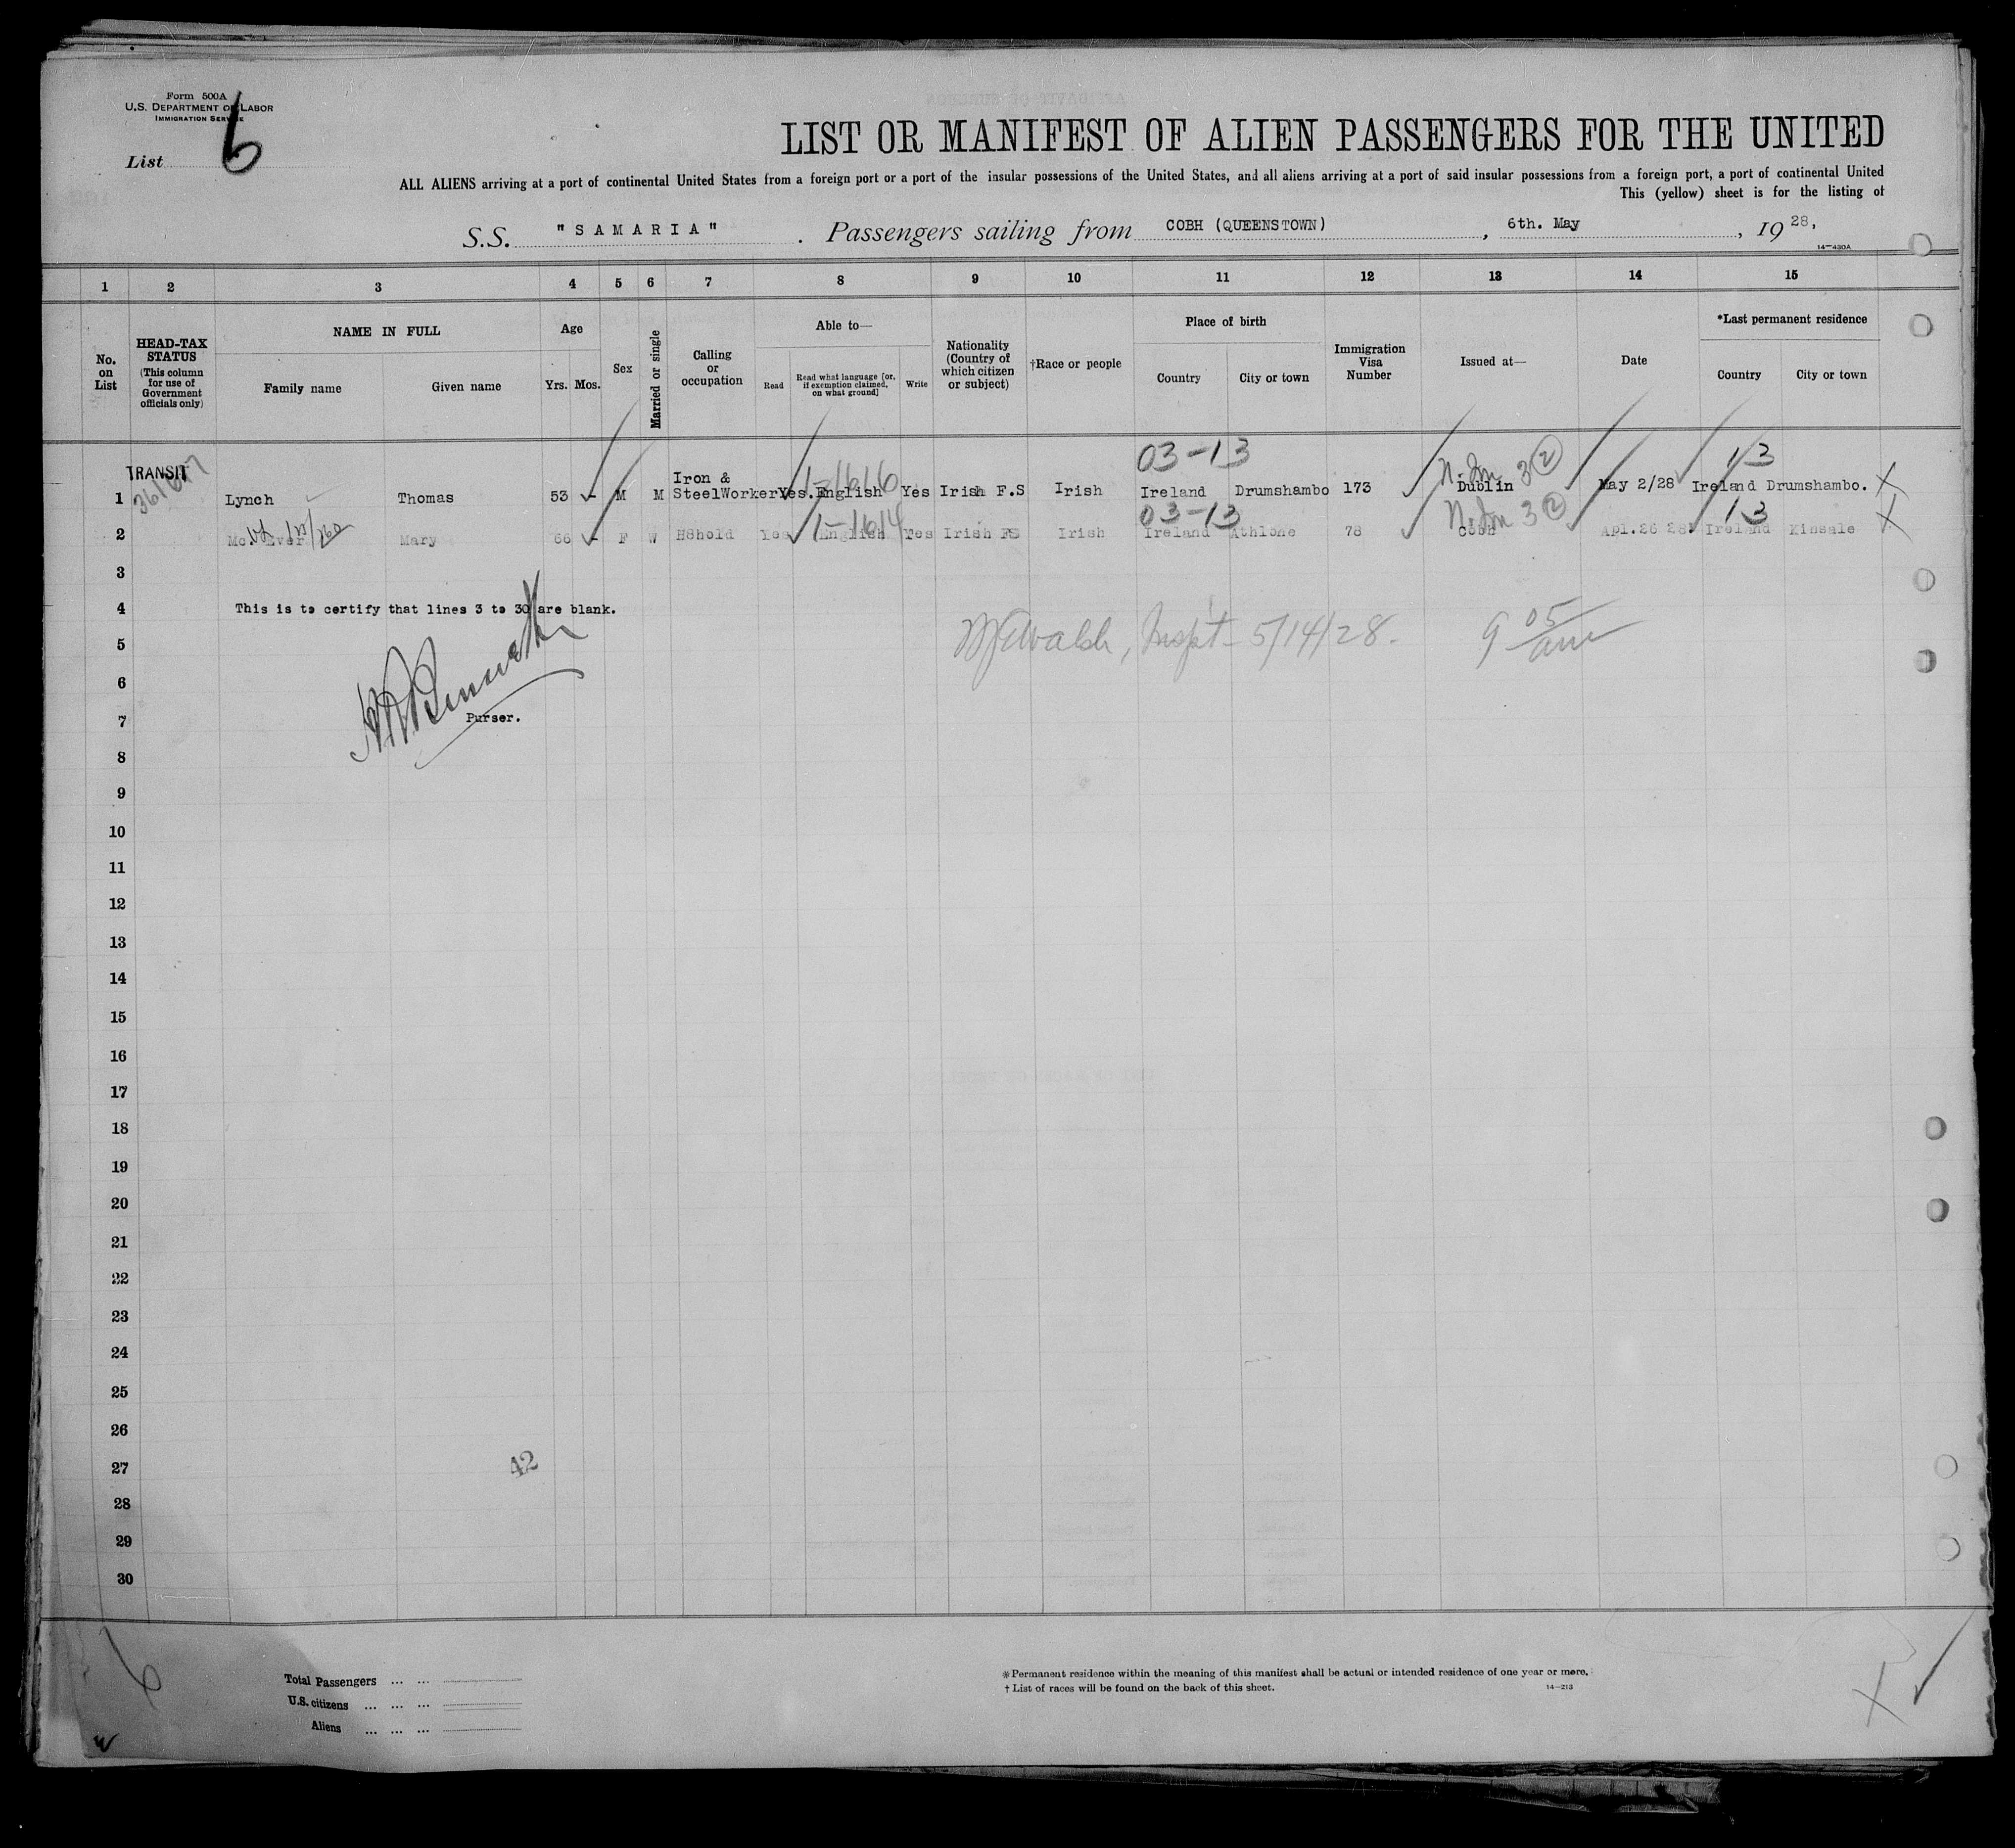 Form 500A
U.S. DEPARTMENT OF LABOR
IMMIGRATION SERVICE
List 6
LIST OR MANIFEST OF ALIEN PASSENGERS FOR THE UNITED
ALL ALIENS arriving at a port of continental United States from a foreign port or a port of the insular possessions of the United States, and all aliens arriving at a port of said insular possessions from a foreign port, a port of continental United
This (yellow) sheet is for the listing of
S.S. "SAMARIA". Passengers sailing from COBH (QUEENSTOWN), 6th. May, 1928,
14—430A
1 2 3 4 5 6 7 8 9 10 11 12 13 14 15
No. on List
HEAD-TAX STATUS (This column for use of Government officials only)
NAME IN FULL
Family name Given name
Age
Yrs. Mos.
Sex
Married or single
Calling or occupation
Able to—
Read Read what language [or, if exemption claimed, on what ground] Write
Nationality (Country of which citizen or subject)
†Race or people
Place of birth
Country City or town
Immigration Visa Number
Issued at—
Date
*Last permanent residence
Country City or town
03-13 13
TRANSIT 1-1616 3 2
1 Lynch Thomas 53 - M M Iron & SteelWorker Yes. English Yes Irish F.S Irish Ireland Drumshambo 173 Dublin May 2/28 Ireland Drumshambo. X
1-1614 03-13 3 2 13
2 Mc. Ever Mary 66 - F W H8hold Yes English Yes Irish FS Irish Ireland Athlone 78 Cobh Apl.26 28 Ireland Kinsale X
3
4 This is to certify that lines 3 to 30 are blank.
5 Walsh, Inspt - 5/14/28. 9 05 am
6
7 Purser.
8
9
10
11
12
13
14
15
16
17
18
19
20
21
22
23
24
25
26
27 42
28
29
30
6
Total Passengers ... ...
U.S. citizens ... ... ...
Aliens ... ... ...
*Permanent residence within the meaning of this manifest shall be actual or intended residence of one year or more.
† List of races will be found on the back of this sheet.
14—213
X
W